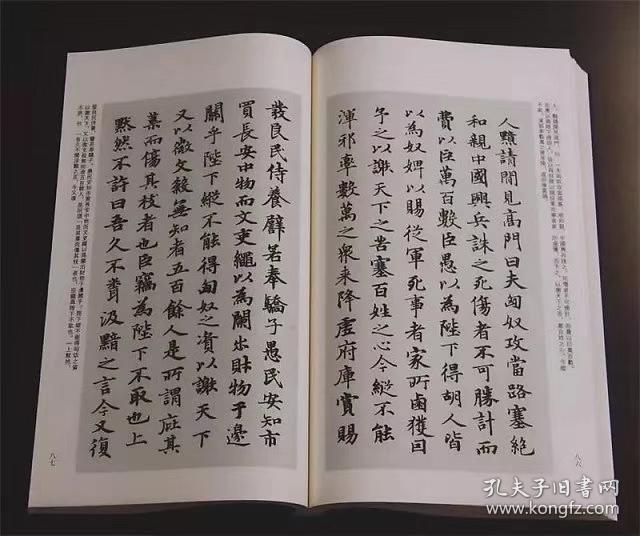 人黯請閒見高門曰夫匈奴攻當路塞絕
和親中國興兵誅之死傷者不可勝計而
費以巨萬百數臣愚以為陛下得胡人皆
以為奴婢以賜從軍死事者家所鹵獲因
予之以謝天下之苦塞百姓之心今縱不能
渾邪率數萬之眾來降虛府庫賞賜
八六
發良民侍養譬若奉驕子愚民安知市
買長安中物而文吏繩以為闌出財物于邊
關乎陛下縱不能得匈奴之資以謝天下
又以微文殺無知者五百餘人是所謂庇其
葉而傷其枝者也臣竊為陛下不取也上
默然不許曰吾久不聞汲黯之言今又復
八七
孔夫子旧书网
www.kongfz.com